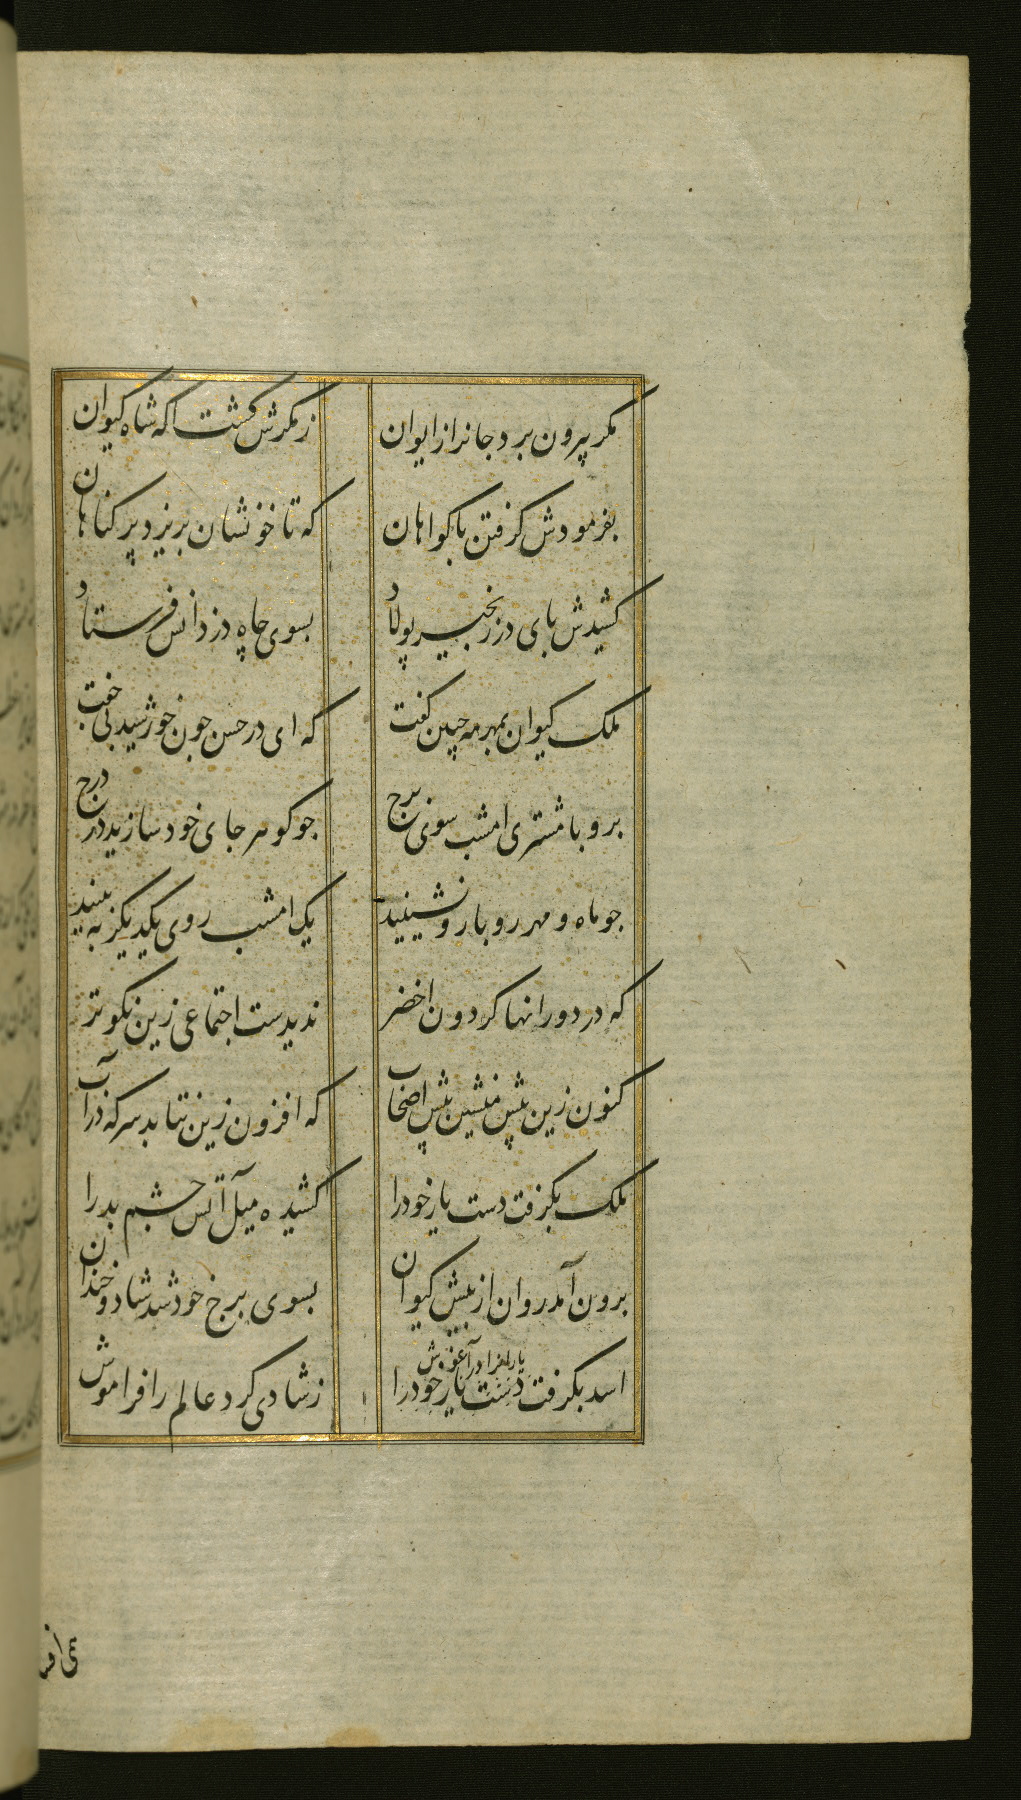 مکر پیرون برد جانرا از ایوان
ز مکرش کشت اکه شاه کیوان
بفرمودش کرفتن با کواهان
که تا خونشان بریزد پر کناهان
کشیدش بای در زنجیر پولاد
بسوی چاه دزدانس فرستاد
ملک کیوان بمهر مه چپن کفت
که ای در حسن جون خورشید بی جفت
برو با مشتری امشب سوی برج
جو کوهر جای خود سازید در درج
جو ماه و مهر رو با رو نشینید
یک امشب روی یکدیکر به بینید
که در دورانها کردون اخضر
ندیدست اجتماعی زین نکوتر
کنون زین پیش منشین پیش اصحاب
که افزون زین نتابد سر که در آب
ملک بکرفت دست یار خودرا
کشیده میل آتس چشم بد را
برون آمد روان از پیش کیوان
بسوی برج خود شد شاد و خندان
یار اندر آغوش
اسد بکرفت دست یار خودرا
ز شادی کرد عالم را فراموش